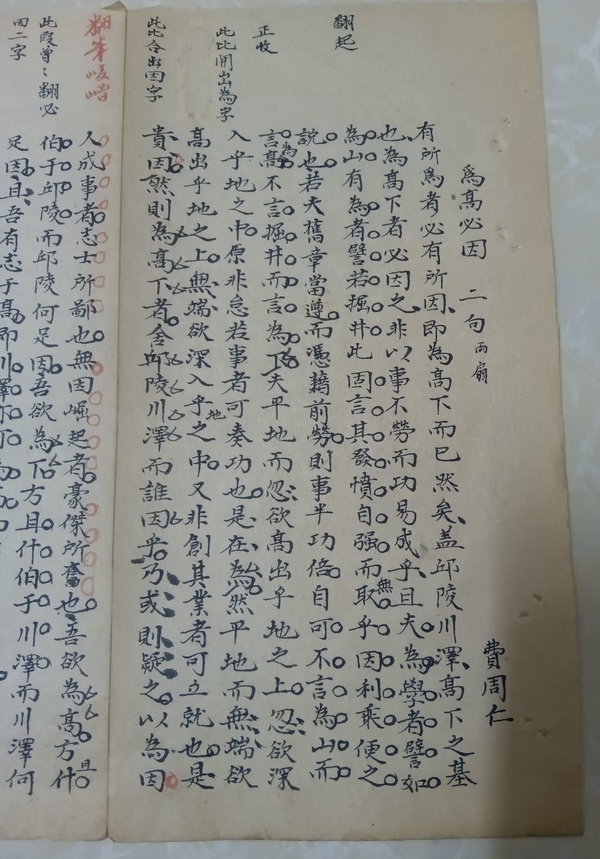 為高必因 二句 兩扇
費周仁
有所為者必有所因即為高下而已然矣蓋邱陵川澤高下之基
也為高下者必因之非以事不勞而功易成乎且夫為學者譬如
為山有為者譬若掘井此固言其發憤自强而無取乎因利乘便之
說也若夫舊章當遵而憑藉前勞則事半功倍自可不言為山而
言為高不言掘井而言為下夫平地而忽欲高出乎地之上忽欲深
入乎地之中原非怠若事者可奏功也是在為然平地而無端欲
高出乎地之上無端欲深入乎地之中又非創其業者可立就也是
貴因然則為高下者舍邱陵川澤而誰因乎乃或則疑之以為因
人成事者志士所鄙也無因崛起者豪傑所奮也吾欲為高方且什
伯于邱陵而邱陵何足因吾欲為下方且什伯于川澤而川澤何
足因且吾有志于高即川澤
翻起
正收
此比開出為字
此比合出因字
翻筆
此段曾翻必
因二字